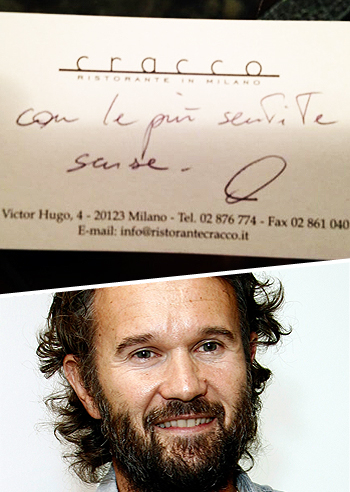 cracco
RISTORANTE IN MILANO
con le più sentite
scuse.
Victor Hugo, 4 - 20123 Milano - Tel. 02 876 774 - Fax 02 861 040
E-mail: info@ristorantecracco.it